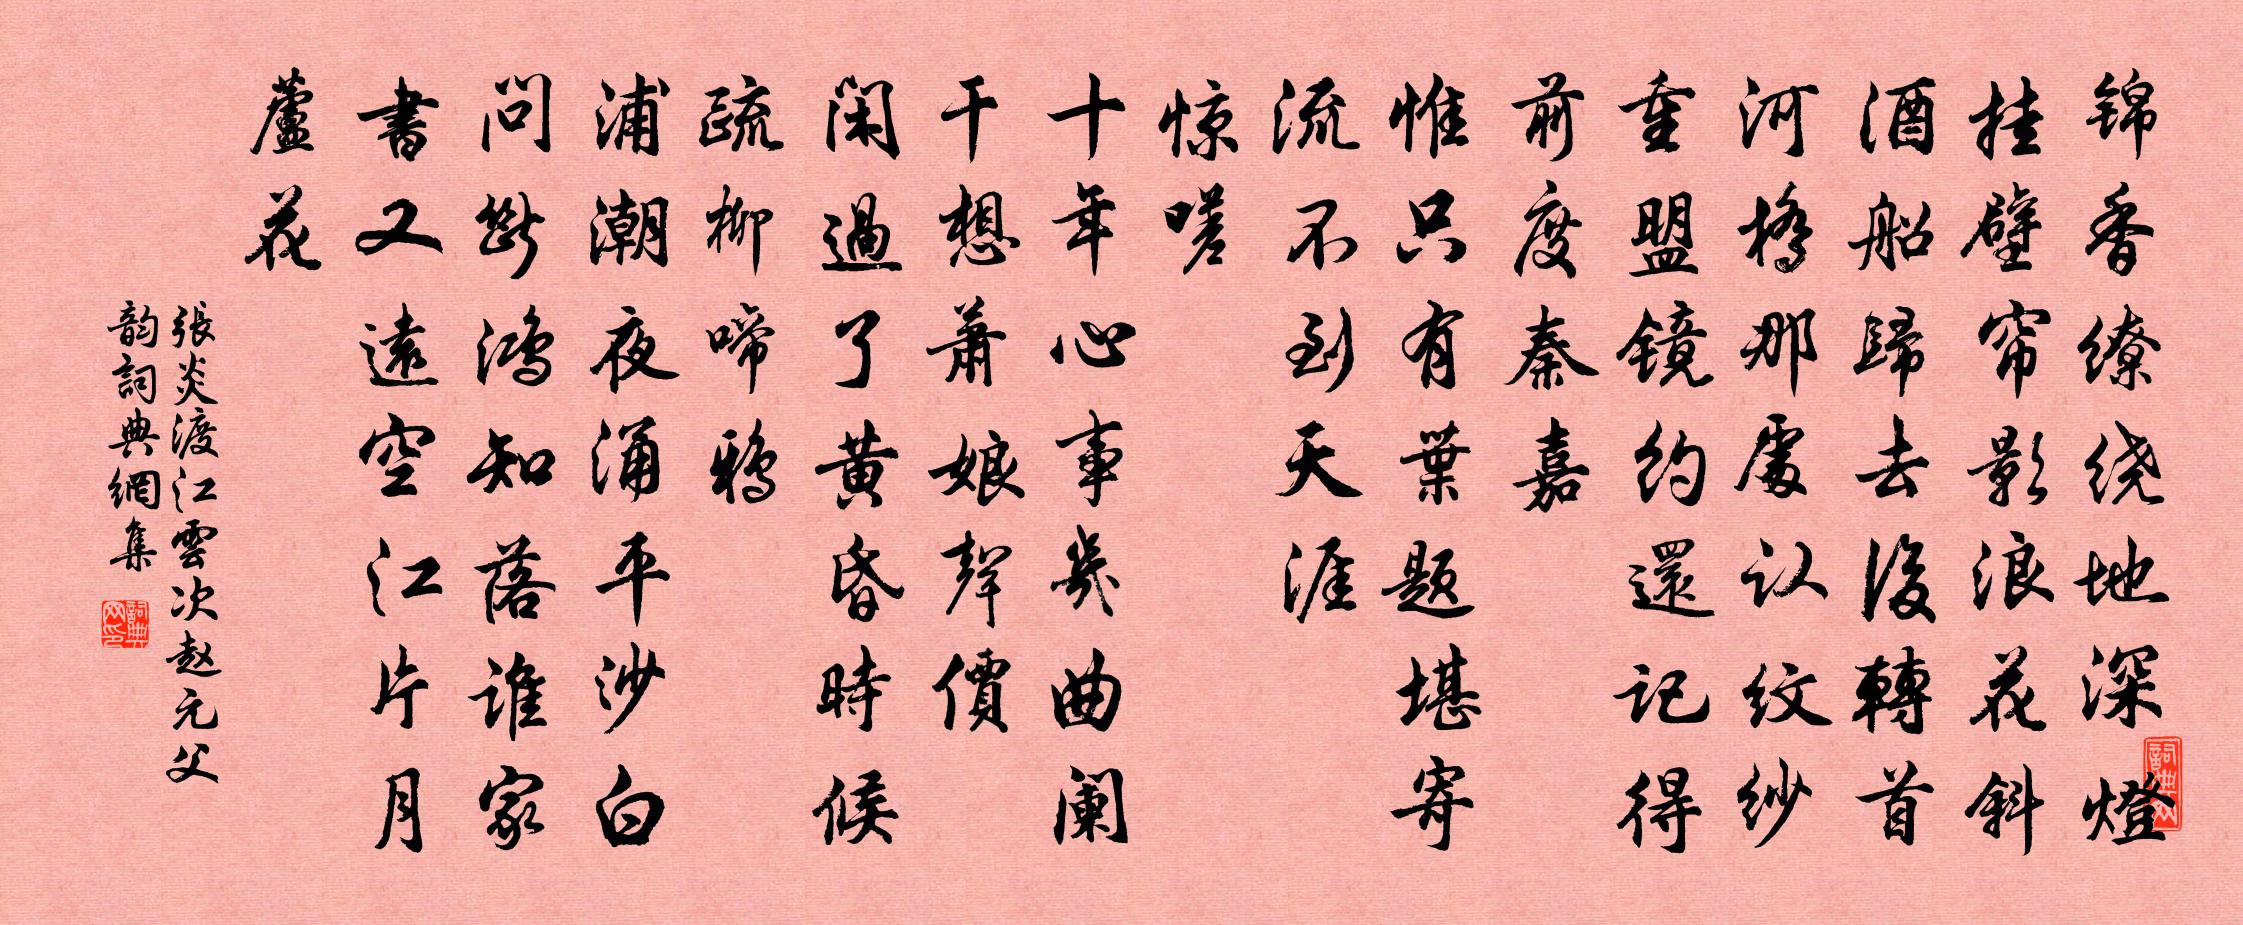 锦香缭绕地深燈
挂壁帘影浪花斜
酒船歸去後轉首
河橋那處认纹纱
重盟镜约還记得
前度秦嘉
惟只有葉题堪寄
流不到天涯
惊嗟
十年心事幾曲阑
干想萧娘聲價
闲過了黄昏時候
疏柳啼鸦
浦潮夜涌平沙白
问断鸿知落誰家
書又遠空江片月
蘆花
張炎渡江雲次赵元父
韵詞典網集
詞典网印
詞典网